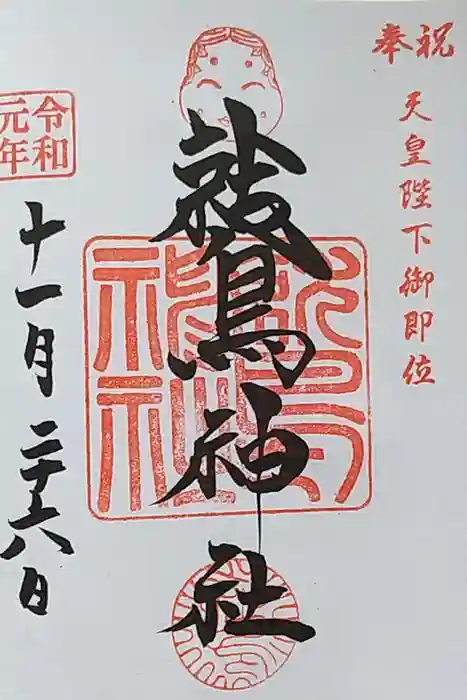 奉祝
天皇陛下御即位
鷲神社
令和元年
十一月二十六日